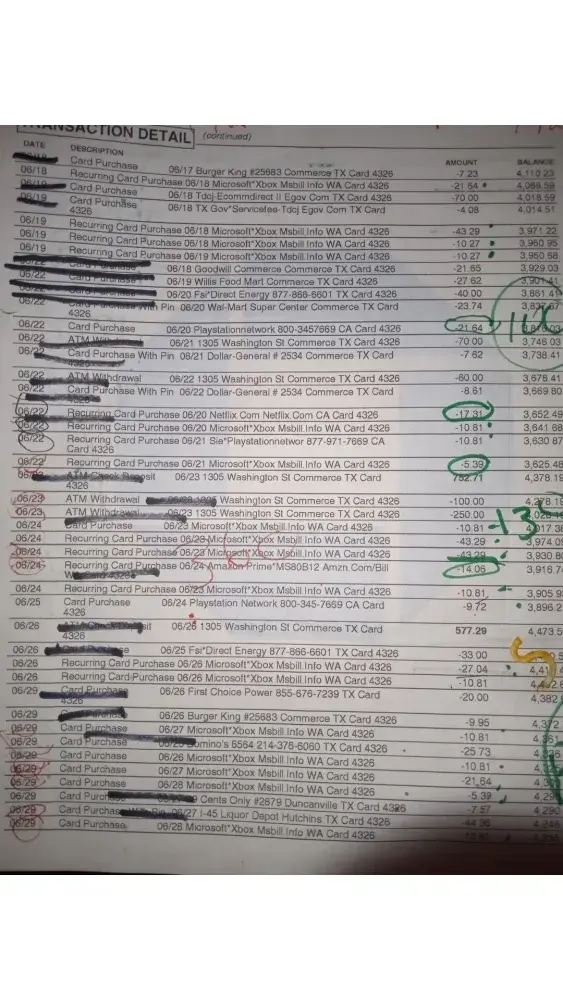 TRANSACTION DETAIL (continued)
DATE DESCRIPTION AMOUNT BALANCE
Card Purchase 06/17 Burger King #25683 Commerce TX Card 4326 -7.23 4,110.23
06/18 Recurring Card Purchase 06/18 Microsoft*Xbox Msbill.Info WA Card 4326 -21.64 4,088.59
Card Purchase 06/18 Tdcj-Ecommdirect II Egov Com TX Card 4326 -70.00 4,018.59
06/19 Card Purchase 06/18 TX Gov*Servicefee-Tdcj Egov Com TX Card -4.08 4,014.51
4326
06/19 Recurring Card Purchase 06/18 Microsoft*Xbox Msbill.Info WA Card 4326 -43.29 3,971.22
06/19 Recurring Card Purchase 06/19 Microsoft*Xbox Msbill.Info WA Card 4326 -10.27 3,960.95
06/19 Recurring Card Purchase 06/19 Microsoft*Xbox Msbill.Info WA Card 4326 -10.27 3,950.68
06/18 Goodwill Commerce Commerce TX Card 4326 -21.65 3,929.03
06/19 Willis Food Mart Commerce TX Card 4326 -27.62 3,901.41
06/20 Fsi*Direct Energy 877-866-6601 TX Card 4326 -40.00 3,861.41
06/22 With Pin 06/20 Wal-Mart Super Center Commerce TX Card -23.74
4326
06/22 Card Purchase 06/20 Playstationnetwork 800-3457669 CA Card 4326 -21.64
06/22 ATM 06/21 1305 Washington St Commerce TX Card 4326 -70.00 3,746.03
06/22 Card Purchase With Pin 06/21 Dollar-General # 2534 Commerce TX Card -7.62 3,738.41
06/22 ATM Withdrawal 06/22 1305 Washington St Commerce TX Card 4326 -60.00 3,678.41
06/22 Card Purchase With Pin 06/22 Dollar-General # 2534 Commerce TX Card -8.61 3,669.80
06/22 Recurring Card Purchase 06/20 Netflix.Com Netflix.Com CA Card 4326 -17.31 3,652.49
06/22 Recurring Card Purchase 06/20 Microsoft*Xbox Msbill.Info WA Card 4326 -10.81 3,641.68
06/22 Recurring Card Purchase 06/21 Sie*Playstationnetwor 877-971-7669 CA -10.81 3,630.87
Card 4326
06/22 Recurring Card Purchase 06/21 Microsoft*Xbox Msbill.Info WA Card 4326 -5.39 3,625.48
ATM Check Deposit 06/23 1305 Washington St Commerce TX Card 752.71 4,378.19
4326
06/23 ATM Withdrawal Washington St Commerce TX Card 4326 -100.00 4,278.19
06/23 ATM Withdrawal Washington St Commerce TX Card 4326 -250.00
06/24 Card Purchase 06/23 Microsoft*Xbox Msbill.Info WA Card 4326 -10.81 -13
06/24 Recurring Card Purchase 06/23 Microsoft*Xbox Msbill.Info WA Card 4326 -43.29 3,974.09
06/24 Recurring Card Purchase 06/23 Microsoft*Xbox Msbill.Info WA Card 4326 -43.29 3,930.80
06/24 Recurring Card Purchase 06/24 Amazon Prime*MS80B12 Amzn.Com/Bill -14.06
06/24 Recurring Card Purchase 06/23 Microsoft*Xbox Msbill.Info WA Card 4326 -10.81
06/25 Card Purchase 06/24 Playstation Network 800-345-7669 CA Card -9.72
4326
06/26 06/26 1305 Washington St Commerce TX Card 577.29
4326
06/26 06/25 Fsi*Direct Energy 877-866-6601 TX Card 4326 -33.00
06/26 Recurring Card Purchase 06/26 Microsoft*Xbox Msbill.Info WA Card 4326 -27.04
06/26 Recurring Card Purchase 06/26 Microsoft*Xbox Msbill.Info WA Card 4326 -10.81
06/29 Card Purchase 06/26 First Choice Power 855-676-7239 TX Card -20.00
4326
06/29 06/26 Burger King #25683 Commerce TX Card 4326 -9.95
06/29 Card Purchase 06/27 Microsoft*Xbox Msbill.Info WA Card 4326 -10.81
06/29 Card Purchase Domino's 6564 214-376-6060 TX Card 4326 -25.73
06/29 Card Purchase 06/27 Microsoft*Xbox Msbill.Info WA Card 4326 -10.81
06/29 Card Purchase 06/28 Microsoft*Xbox Msbill.Info WA Card 4326 -21.64
06/29 Card Purchase Cents Only #2879 Duncanville TX Card 4326 -5.39
06/29 Card Purchase 06/27 I-45 Liquor Depot Hutchins TX Card 4326 -7.57
06/29 Card Purchase 06/28 Microsoft*Xbox Msbill.Info WA Card 4326